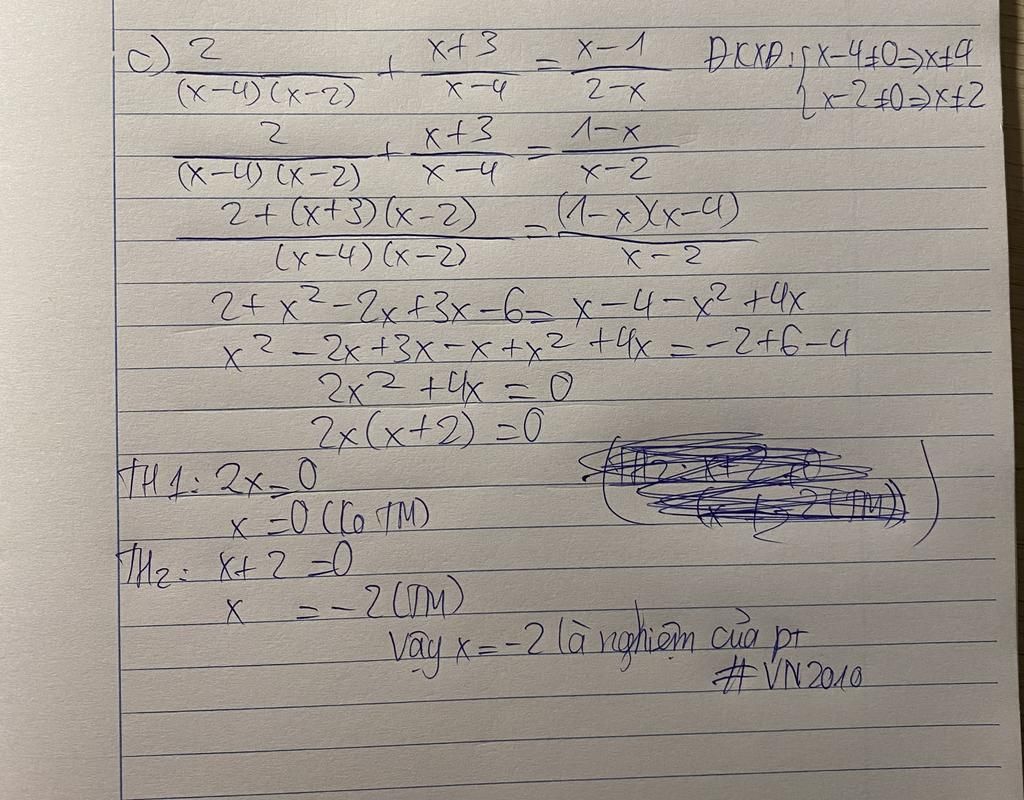 c) 2/((x-4)(x-2)) + (x+3)/(x-4) = (x-1)/(2-x) ĐKXĐ: { x-4≠0=>x≠4
{ x-2≠0=>x≠2
2/((x-4)(x-2)) + (x+3)/(x-4) = (1-x)/(x-2)
(2+(x+3)(x-2))/((x-4)(x-2)) = ((1-x)(x-4))/(x-2)
2+x²-2x+3x-6= x-4-x²+4x
x²-2x+3x-x+x²+4x =-2+6-4
2x²+4x = 0
2x(x+2) =0
TH1: 2x=0
x =0 (Ko TM)
TH2: x+2 =0
x = -2 (TM)
Vậy x=-2 là nghiệm của pt
# VN2010